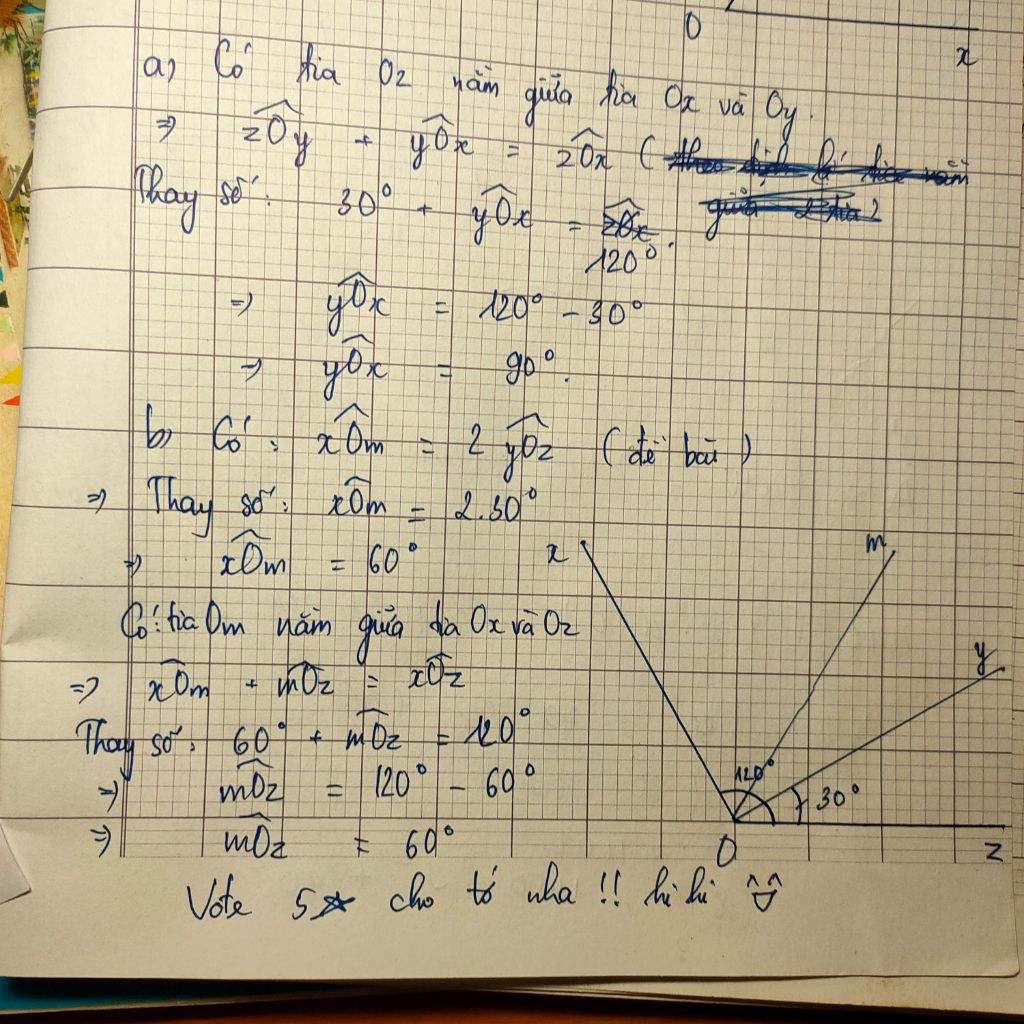 O
x
a) Có tia Oz nằm giữa tia Ox và Oy.
=> zOy + yOx = zOx (theo định lí tia nằm
giữa 2 tia)
Thay số: 30° + yOx = zOx.
120°
=> yOx = 120° - 30°
=> yOx = 90°.
b) Có: xOm = 2 yOz (đề bài)
=> Thay số: xOm = 2.30°
=> xOm = 60°
Có: tia Om nằm giữa tia Ox và Oz
=> xOm + mOz = xOz
Thay số: 60° + mOz = 120°
=> mOz = 120° - 60°
=> mOz = 60°
x
m
y
120°
30°
O
z
Vote 5☆ cho tớ nha !! hi hi ^^